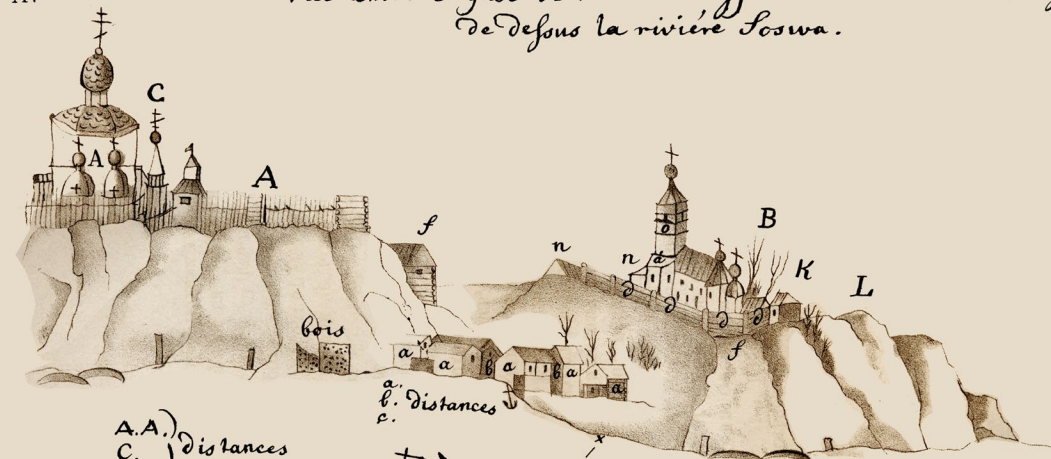 de dessus la riviére Soswa.
C
A
A
f
B
n
b
n
a
K
L
d
d
d
d
f
bois
a
a
b
b
a
a
a.
b. distances
c.
x
A.A.)
C. ) distances